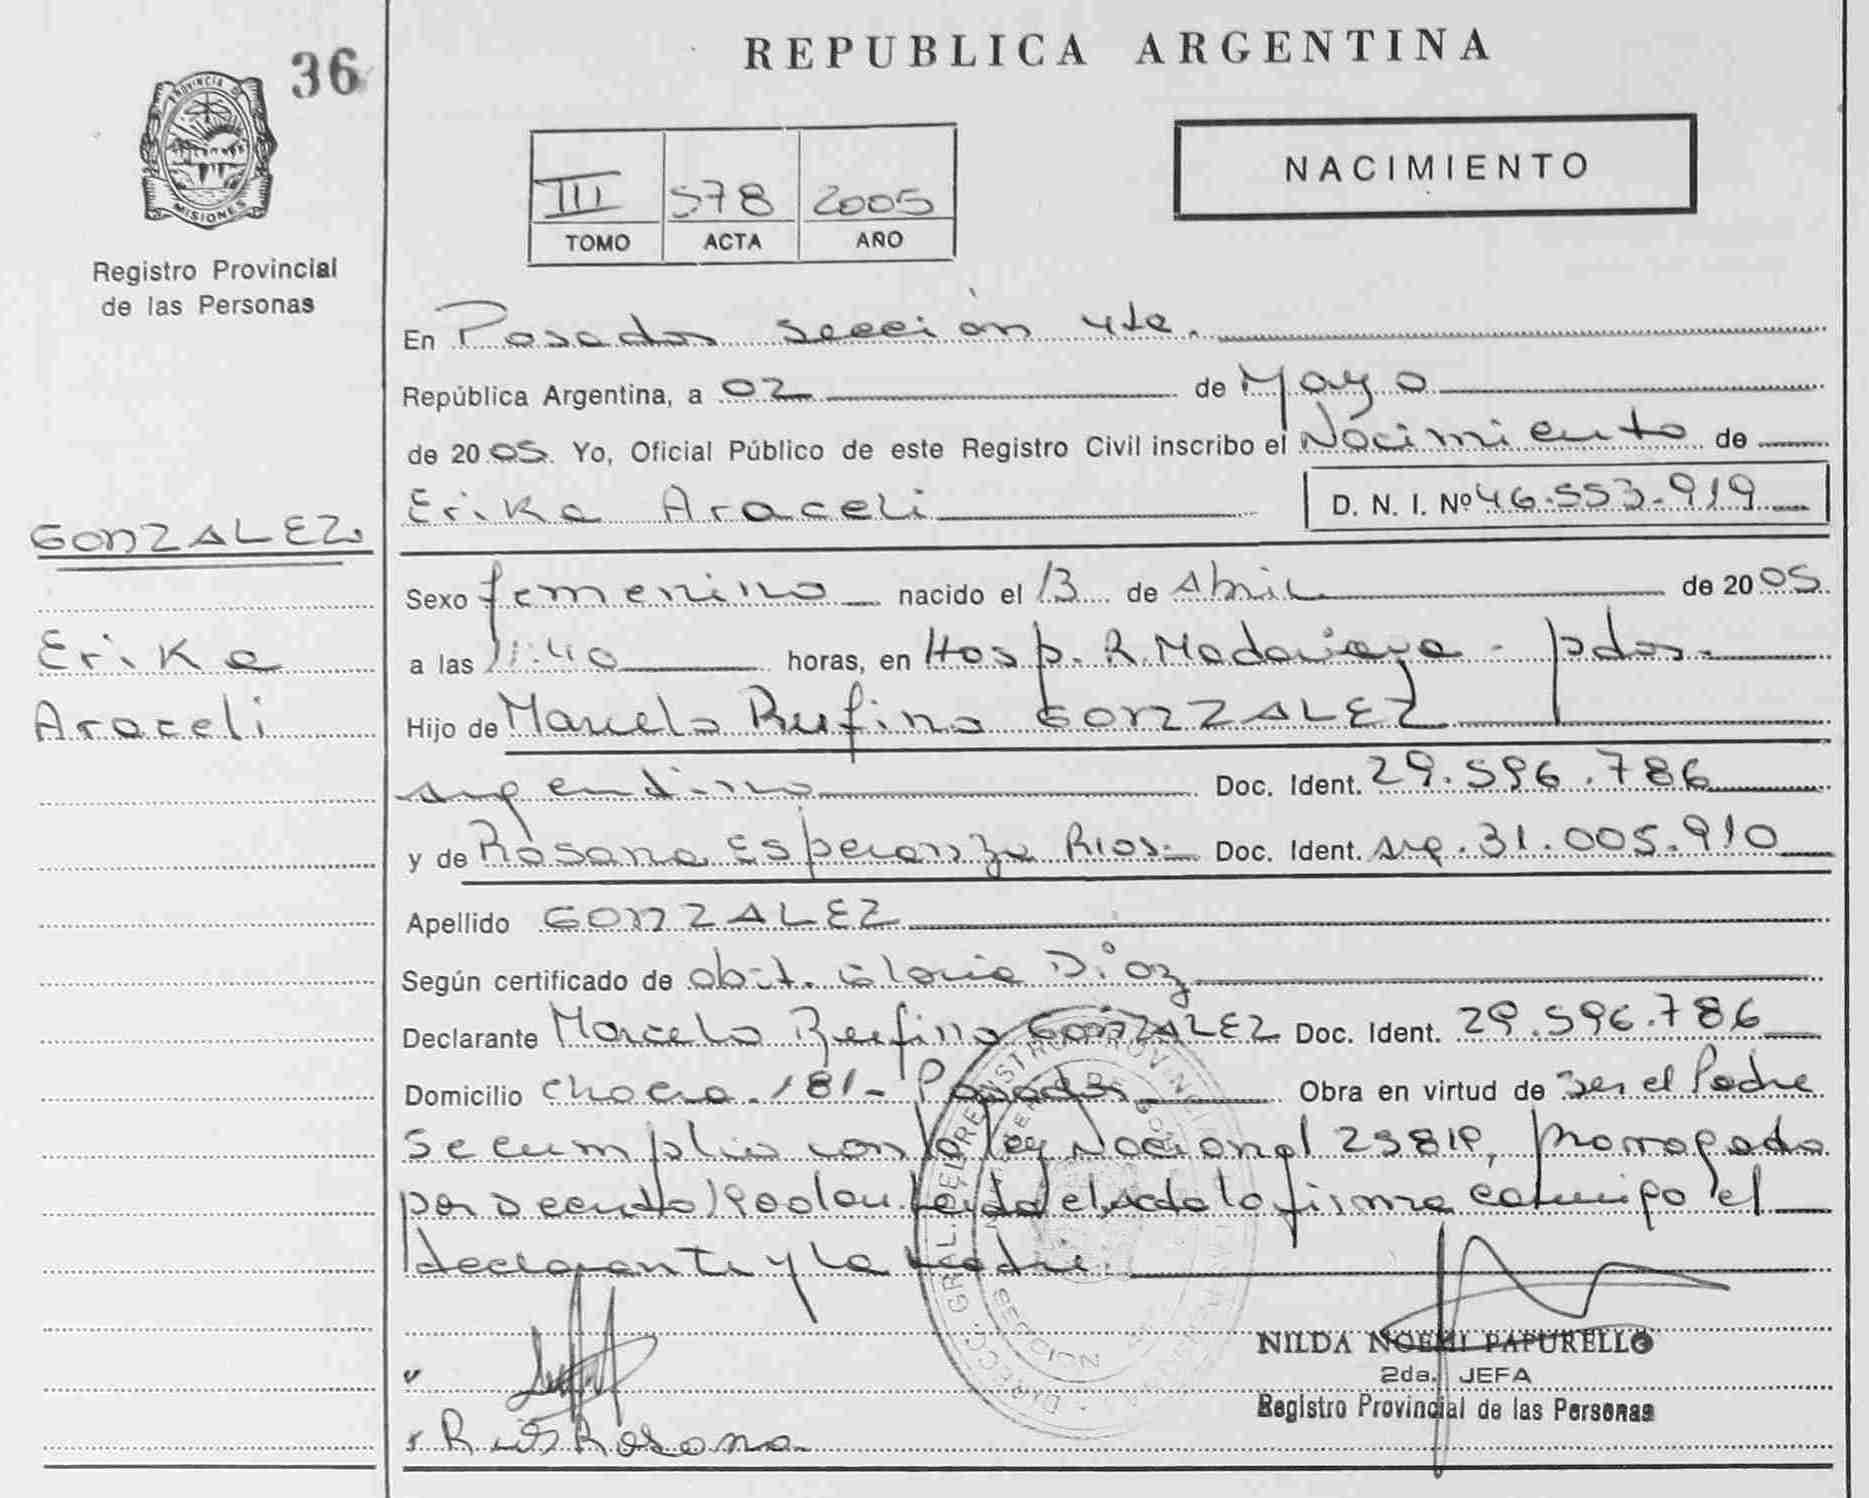 36
REPUBLICA ARGENTINA
PROVINCIA DE
MISIONES
Registro Provincial
de las Personas
III 578 2005
TOMO ACTA AÑO
NACIMIENTO
En Posadas sección 4ta.
República Argentina, a 02 de Mayo
de 2005. Yo, Oficial Público de este Registro Civil inscribo el Nacimiento de
Erika Araceli D. N. I. Nº 46.553.919
GONZALEZ
Erika
Araceli
Sexo femenino nacido el 13 de Abril de 2005.
a las 11:40 horas, en Hosp. R. Madariaga - pdas.
Hijo de Marcelo Rufino GONZALEZ
argentino Doc. Ident. 29.596.786
y de Rosana Esperanza Rios Doc. Ident. arg. 31.005.910
Apellido GONZALEZ
Según certificado de obst. Gloria Diaz
Declarante Marcelo Rufino GONZALEZ Doc. Ident. 29.596.786
Domicilio Chacra 181 - Posadas Obra en virtud de ser el Padre
Se cumplio con la ley Nacional 25819, prorrogada
por Decreto Leida el acta la firma conmigo el
declarante y la madre.
NILDA NOEMI PAPURELLO
2da. JEFA
Registro Provincial de las Personas
Rios Rosana